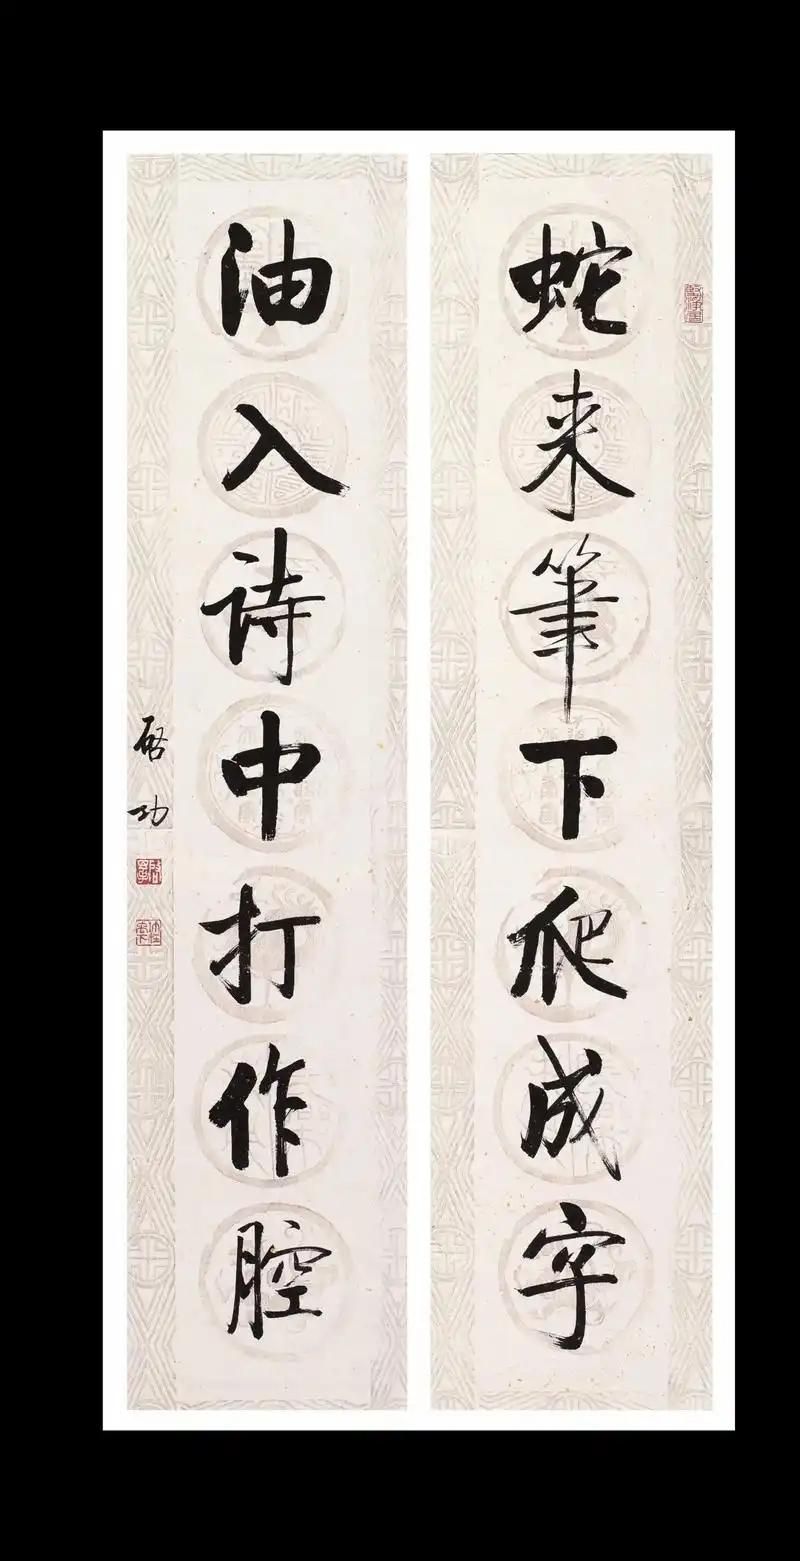 蛇来筆下爬成字
油入诗中打作腔
啓功